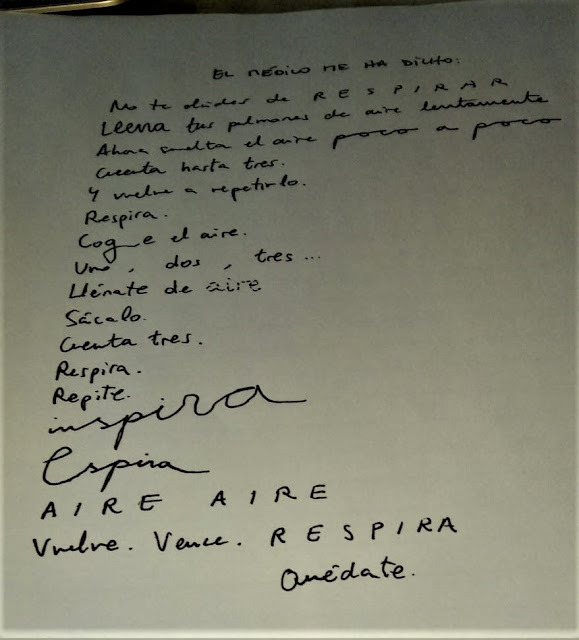 EL MÉDICO ME HA DICHO:
No te olvides de RESPIRAR
Leena tus pulmones de aire lentamente
Ahora suelta el aire poco a poco
Cuenta hasta tres.
Y vuelve a repetirlo.
Respira.
Coge el aire.
Uno, dos, tres...
Llénate de aire
Sácalo.
Cuenta tres.
Respira.
Repite.
inspira
Espira
AIRE AIRE
Vuelve. Vence. RESPIRA
Quédate.